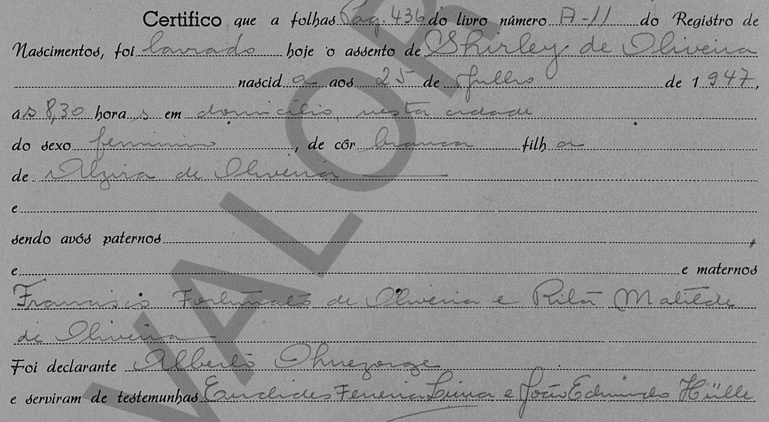 Certifico que a folhas Pág. 436 do livro número A-11 do Registro de
Nascimentos, foi lavrado hoje o assento de Shirley de Oliveira
nascid a aos 25 de Julho de 1947,
às 8,30 hora s em domicílio, nesta cidade
do sexo feminino, de côr branca filh a
de Alzira de Oliveira
e
sendo avós paternos
e e maternos
Francisco Fortunato de Oliveira e Rita Matilde
de Oliveira
Foi declarante Alberto
e serviram de testemunhas Euclides Ferreira Lima e João Edmundo Hülle
VALOR